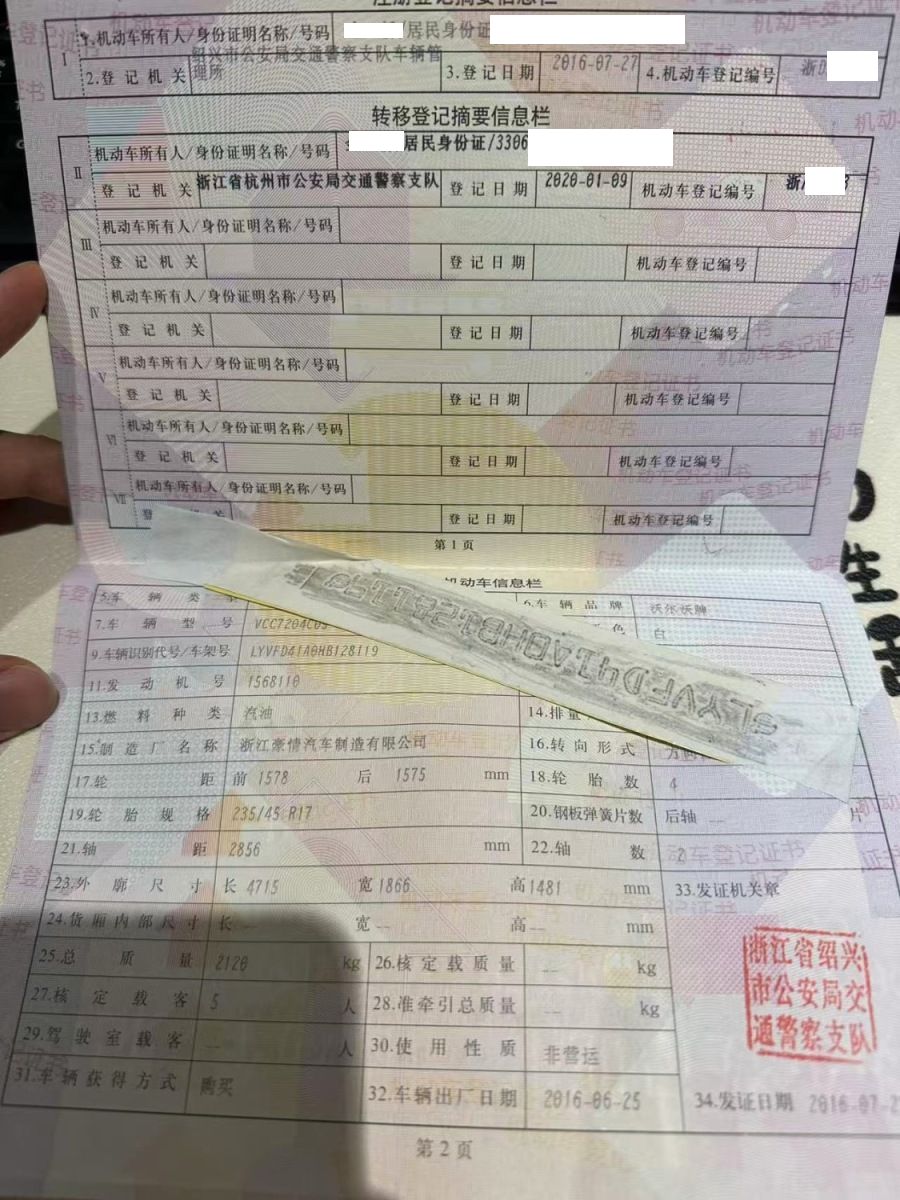 注册登记摘要信息栏
Ⅰ 1.机动车所有人/身份证明名称/号码 /居民身份证
2.登记机关 绍兴市公安局交通警察支队车辆管理所 3.登记日期 2016-07-27 4.机动车登记编号 浙D
转移登记摘要信息栏
Ⅱ 机动车所有人/身份证明名称/号码 居民身份证/3306
登记机关 浙江省杭州市公安局交通警察支队 登记日期 2020-01-09 机动车登记编号 浙
Ⅲ 机动车所有人/身份证明名称/号码
登记机关 登记日期 机动车登记编号
Ⅳ 机动车所有人/身份证明名称/号码
登记机关 登记日期 机动车登记编号
Ⅴ 机动车所有人/身份证明名称/号码
登记机关 登记日期 机动车登记编号
Ⅵ 机动车所有人/身份证明名称/号码
登记机关 登记日期 机动车登记编号
Ⅶ 机动车所有人/身份证明名称/号码
登记机关 登记日期 机动车登记编号
第1页
机动车信息栏
5.车辆类 6.车辆品牌 沃尔沃牌
7.车辆型号 VCC7204C 色 白
9.车辆识别代号/车架号 LYVFD41A0HB128119
LYVFD41A0HB128119
11.发动机号 1568110
13.燃料种类 汽油 14.排量
15.制造厂名称 浙江豪情汽车制造有限公司 16.转向形式 方向
17.轮距 前 1578 后 1575 mm 18.轮胎数 4
19.轮胎规格 235/45 R17 20.钢板弹簧片数 后轴 -- 片
21.轴距 2856 mm 22.轴数 2
23.外廓尺寸 长 4715 宽 1866 高 1481 mm 33.发证机关章
24.货厢内部尺寸 长 -- 宽 -- 高 -- mm
25.总质量 2120 kg 26.核定载质量 -- kg
27.核定载客 5 人 28.准牵引总质量 -- kg
浙江省绍兴
市公安局交
通警察支队
29.驾驶室载客 -- 人 30.使用性质 非营运
31.车辆获得方式 购买 32.车辆出厂日期 2016-06-25 34.发证日期 2016-07-2
第2页